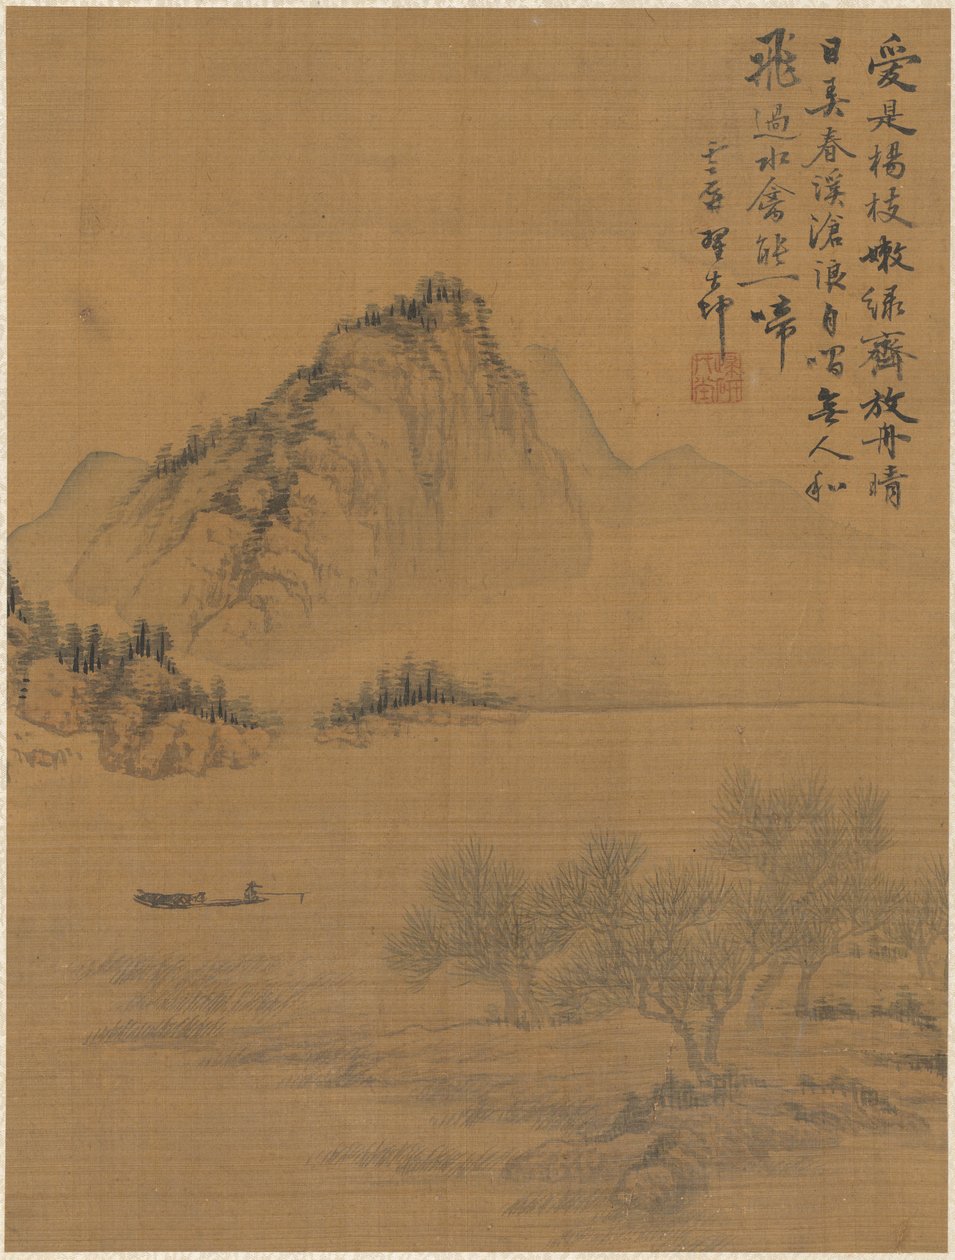 愛是楊枝嫩綠齊放舟晴
日弄春溪滄浪自唱無人和
飛過水禽能一啼
雲屏翟大坤